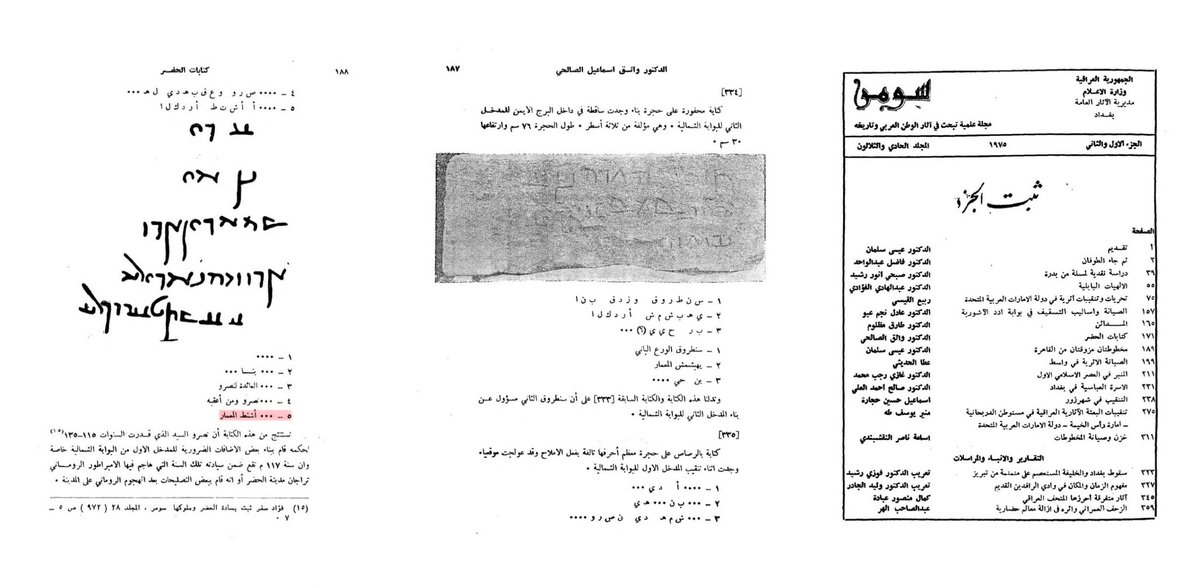 الجمهورية العراقية
وزارة الاعلام
مديرية الآثار العامة
بغداد
سومر
مجلة علمية تبحث في آثار الوطن العربي وتاريخه
الجزء الاول والثاني ١٩٧٥ المجلد الحادي والثلاثون
ثبت الجزء
الصفحة
١ تقديم الدكتور عيسى سلمان
٣ ثم جاء الطوفان الدكتور فاضل عبدالواحد
٣٩ دراسة نقدية لمسلة من بدرة الدكتور صبحي انور رشيد
٥٥ الالهيات البابلية الدكتور عبدالهادي الفؤادي
٧٥ تحريات وتنقيبات أثرية في دولة الامارات العربية المتحدة ربيع القيسي
١٥٧ الصيانة واساليب التسقيف في بوابة ادد الآشورية الدكتور عادل نجم عبو
١٦٥ المـــدائن الدكتور طارق مظلوم
١٧١ كتابات الحضر الدكتور واثق الصالحي
١٨٩ مخطوطتان مزوقتان من القاهرة الدكتور عيسى سلمان
١٩٩ الصيانة الاثرية في واسط عطا الحديثي
٢١١ المنبر في العصر الاسلامي الاول الدكتور غازي رجب محمد
٢٣١ الاسرة العباسية في بغداد الدكتور صالح احمد العلي
٢٣٨ التنقيب في شهرزور اسماعيل حسين حجارة
٢٧٥ تنقيبات البعثة الآثارية العراقية في مستوطن الدربحانية منير يوسف طه
- امارة رأس الخيمة - دولة الامارات العربية المتحدة
٣١١ خزن وصيانة المخطوطات اسامة ناصر النقشبندي
التقارير والانباء والمراسلات
٣٢٣ سقوط بغداد والخليفة المستعصم على منمنمة من تبريز تعريب الدكتور فوزي رشيد
٣٢٧ مفهوم الزمان والمكان في وادي الرافدين القديم تعريب الدكتور وليد الجادر
٣٤٥ آثار متفرقة أحرزها المتحف العراقي كمال منصور عبادة
٣٥٩ الزحف العمراني واثره في ازالة معالم حضارية عبدالصاحب الهر
الدكتور واثـق اسماعيل الصالحي ١٨٧
[٣٣٤]
كتابة محفورة على حجرة بناء وجدت ساقطة في داخل البرج الأيمن للمدخل
الثاني للبوابة الشمالية • وهي مؤلفة من ثلاثة أسطر • طول الحجرة ٧٦ سم وارتفاعها
٣٠ سم •
١ – س ن ط ر و ق و ز د ق ب ن ا
٢ – ي هـ ب ش م ش أ ر د ك ل ا
٣ – ب ر ح ي ي (؟) •••
١ – سنطروق الورع الباني
٢ – يهبشمش المعمار
٣ – بن حي ••••
وتدلنا هذه الكتابة والكتابة السابقة [٣٣٣] على أن سنطروق الثاني مسؤول عـن
بناء المدخل الثاني للبوابة الشمالية •
[٣٣٥]
كتابة بالرصاص على حجرة معظم أحرفها تالفة بفعل الاملاح وقد عولجت موقعيا •
وجدت اثناء تنقيب المدخل الاول للبوابة الشمالية •
١ – •••• أ د ي •••
٢ – ••• ب ن هـ د ي
٣ – ••• ش م هـ د ي ن ص ر و ••••
١٨٨ كتابات الحضـر
٤ – •••• ص ر و و ع ق ب هـ د ي ل هـ •••
٥ – •••• أ أ ش ت ط أ ر د ك ل ا
١ – ••••
٢ – ••• بنـــا •••
٣ – ••• العائدة لنصرو
٤ – ••••نصرو ومن أعقبه
٥ – ••• أشتط المعمار
نستنتج من هذه الكتابة أن نصرو السيد الذي قـدرت السنوات ١١٥–١٣٥(١٥)
لحكمه قام ببناء بعض الاضافات الضرورية للمدخل الاول من البوابة الشمالية خاصة
وان سنة ١١٧ م تقع ضمن سيادته تلك السنة التي هاجم فيها الامبراطور الرومـاني
تراجان مدينة الحضر أو انه قام ببعض التصليحات بعد الهجوم الروماني على المدينة •
(١٥) فؤاد سفر ثبت بسادة الحضر وملوكها سومر ، المجلد ٢٨ ( ٩٧٢ ) ص ٥ –
٠ ٧